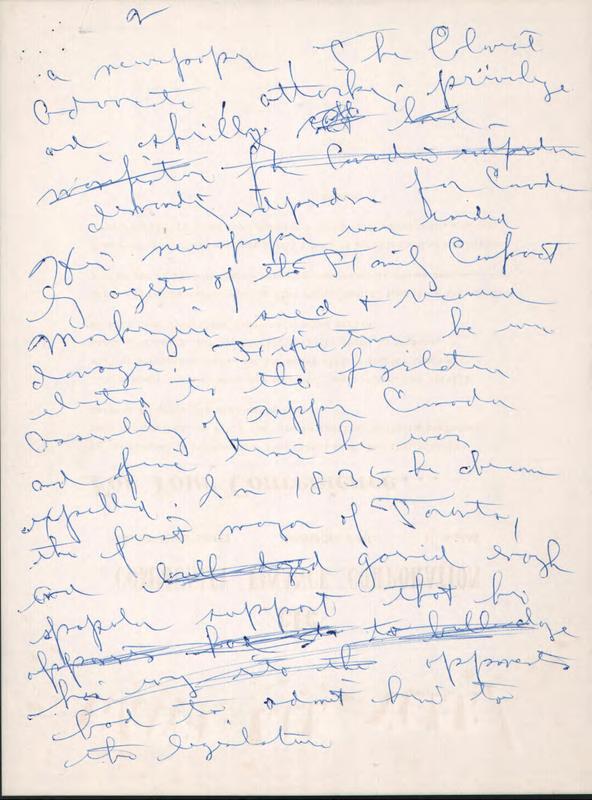 2
a newspaper, The Colonist
Advocate, attacking privilege
and
manifestos for Canadian independence
demanding independence for Canada
His newspaper was
by agents of the Family Compact
MacKenzie sued + received
damages. Five times he was
elected to the legislative
Assembly of Upper Canada
and five times he was
expelled. In 1835 he became
the first mayor of Toronto,
and gained enough
popular support that his
opponents had to to bulldoze
his way into the opponents
had to admit him to
the legislature